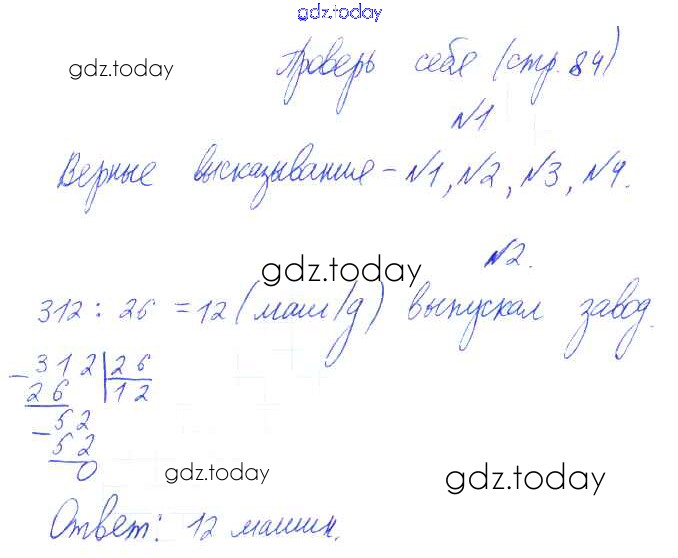 gdz.today
Проверь себя (стр. 84)
gdz.today
№1
Верные высказывания - №1, №2, №3, №4.
№2.
gdz.today
312 : 26 = 12 (маш/д) выпускал завод.
- 312 | 26
26 | 12
- 52
52
0
gdz.today
gdz.today
Ответ: 12 машин.